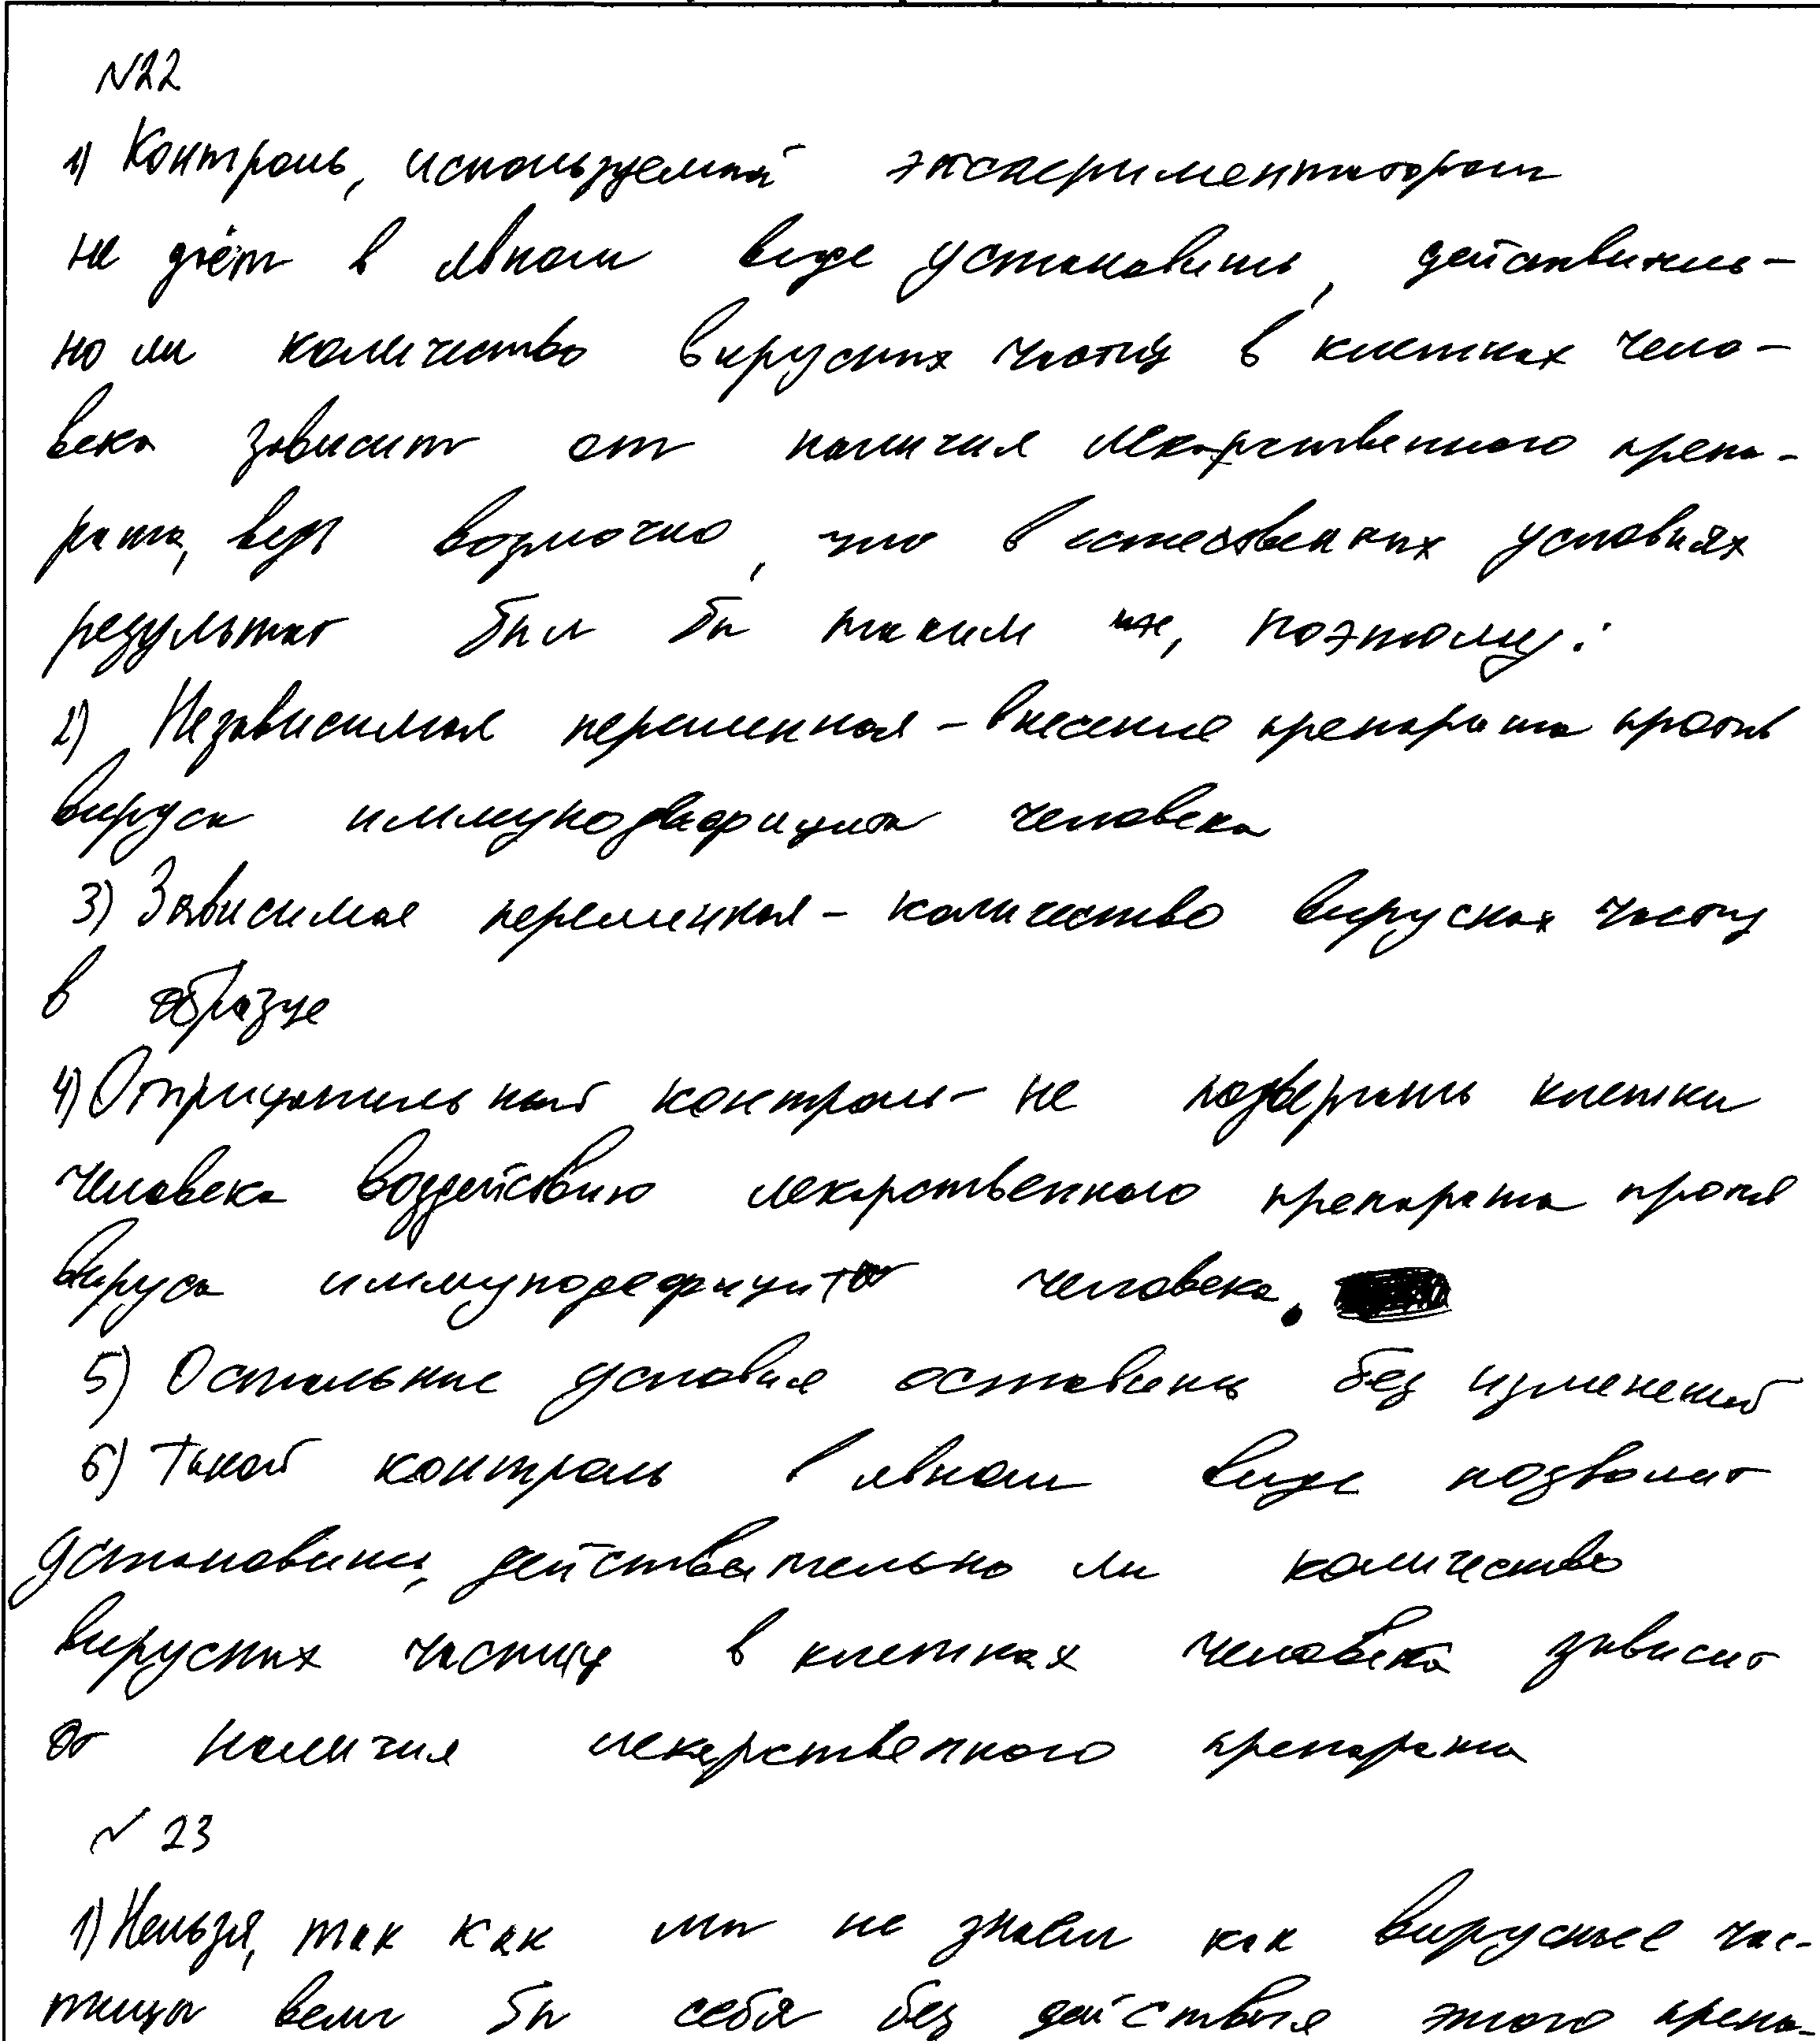 №22
1) Контроль, используемый экспериментатором
не даёт в явном виде установить, действитель-
но ли количество вирусных частиц в клетках чело-
века зависит от наличия лекарственного препа-
рата, ведь возможно, что в естественных условиях
результат был бы таким же, поэтому:
2) Независимая переменная - внесение препарата против
вируса иммунодефицита человека
3) Зависимая переменная - количество вирусных частиц
в образце
4) Отрицательный контроль - не подвергать клетки
человека воздействию лекарственного препарата против
вируса иммунодефицита человека.
5) Остальные условия оставить без изменений
6) Такой контроль в явном виде позволит
установить, действительно ли количество
вирусных частиц в клетках человека зависит
от наличия лекарственного препарата
№ 23
1) Нельзя, так как мы не знаем как вирусные час-
тицы вели бы себя без действия этого препа-